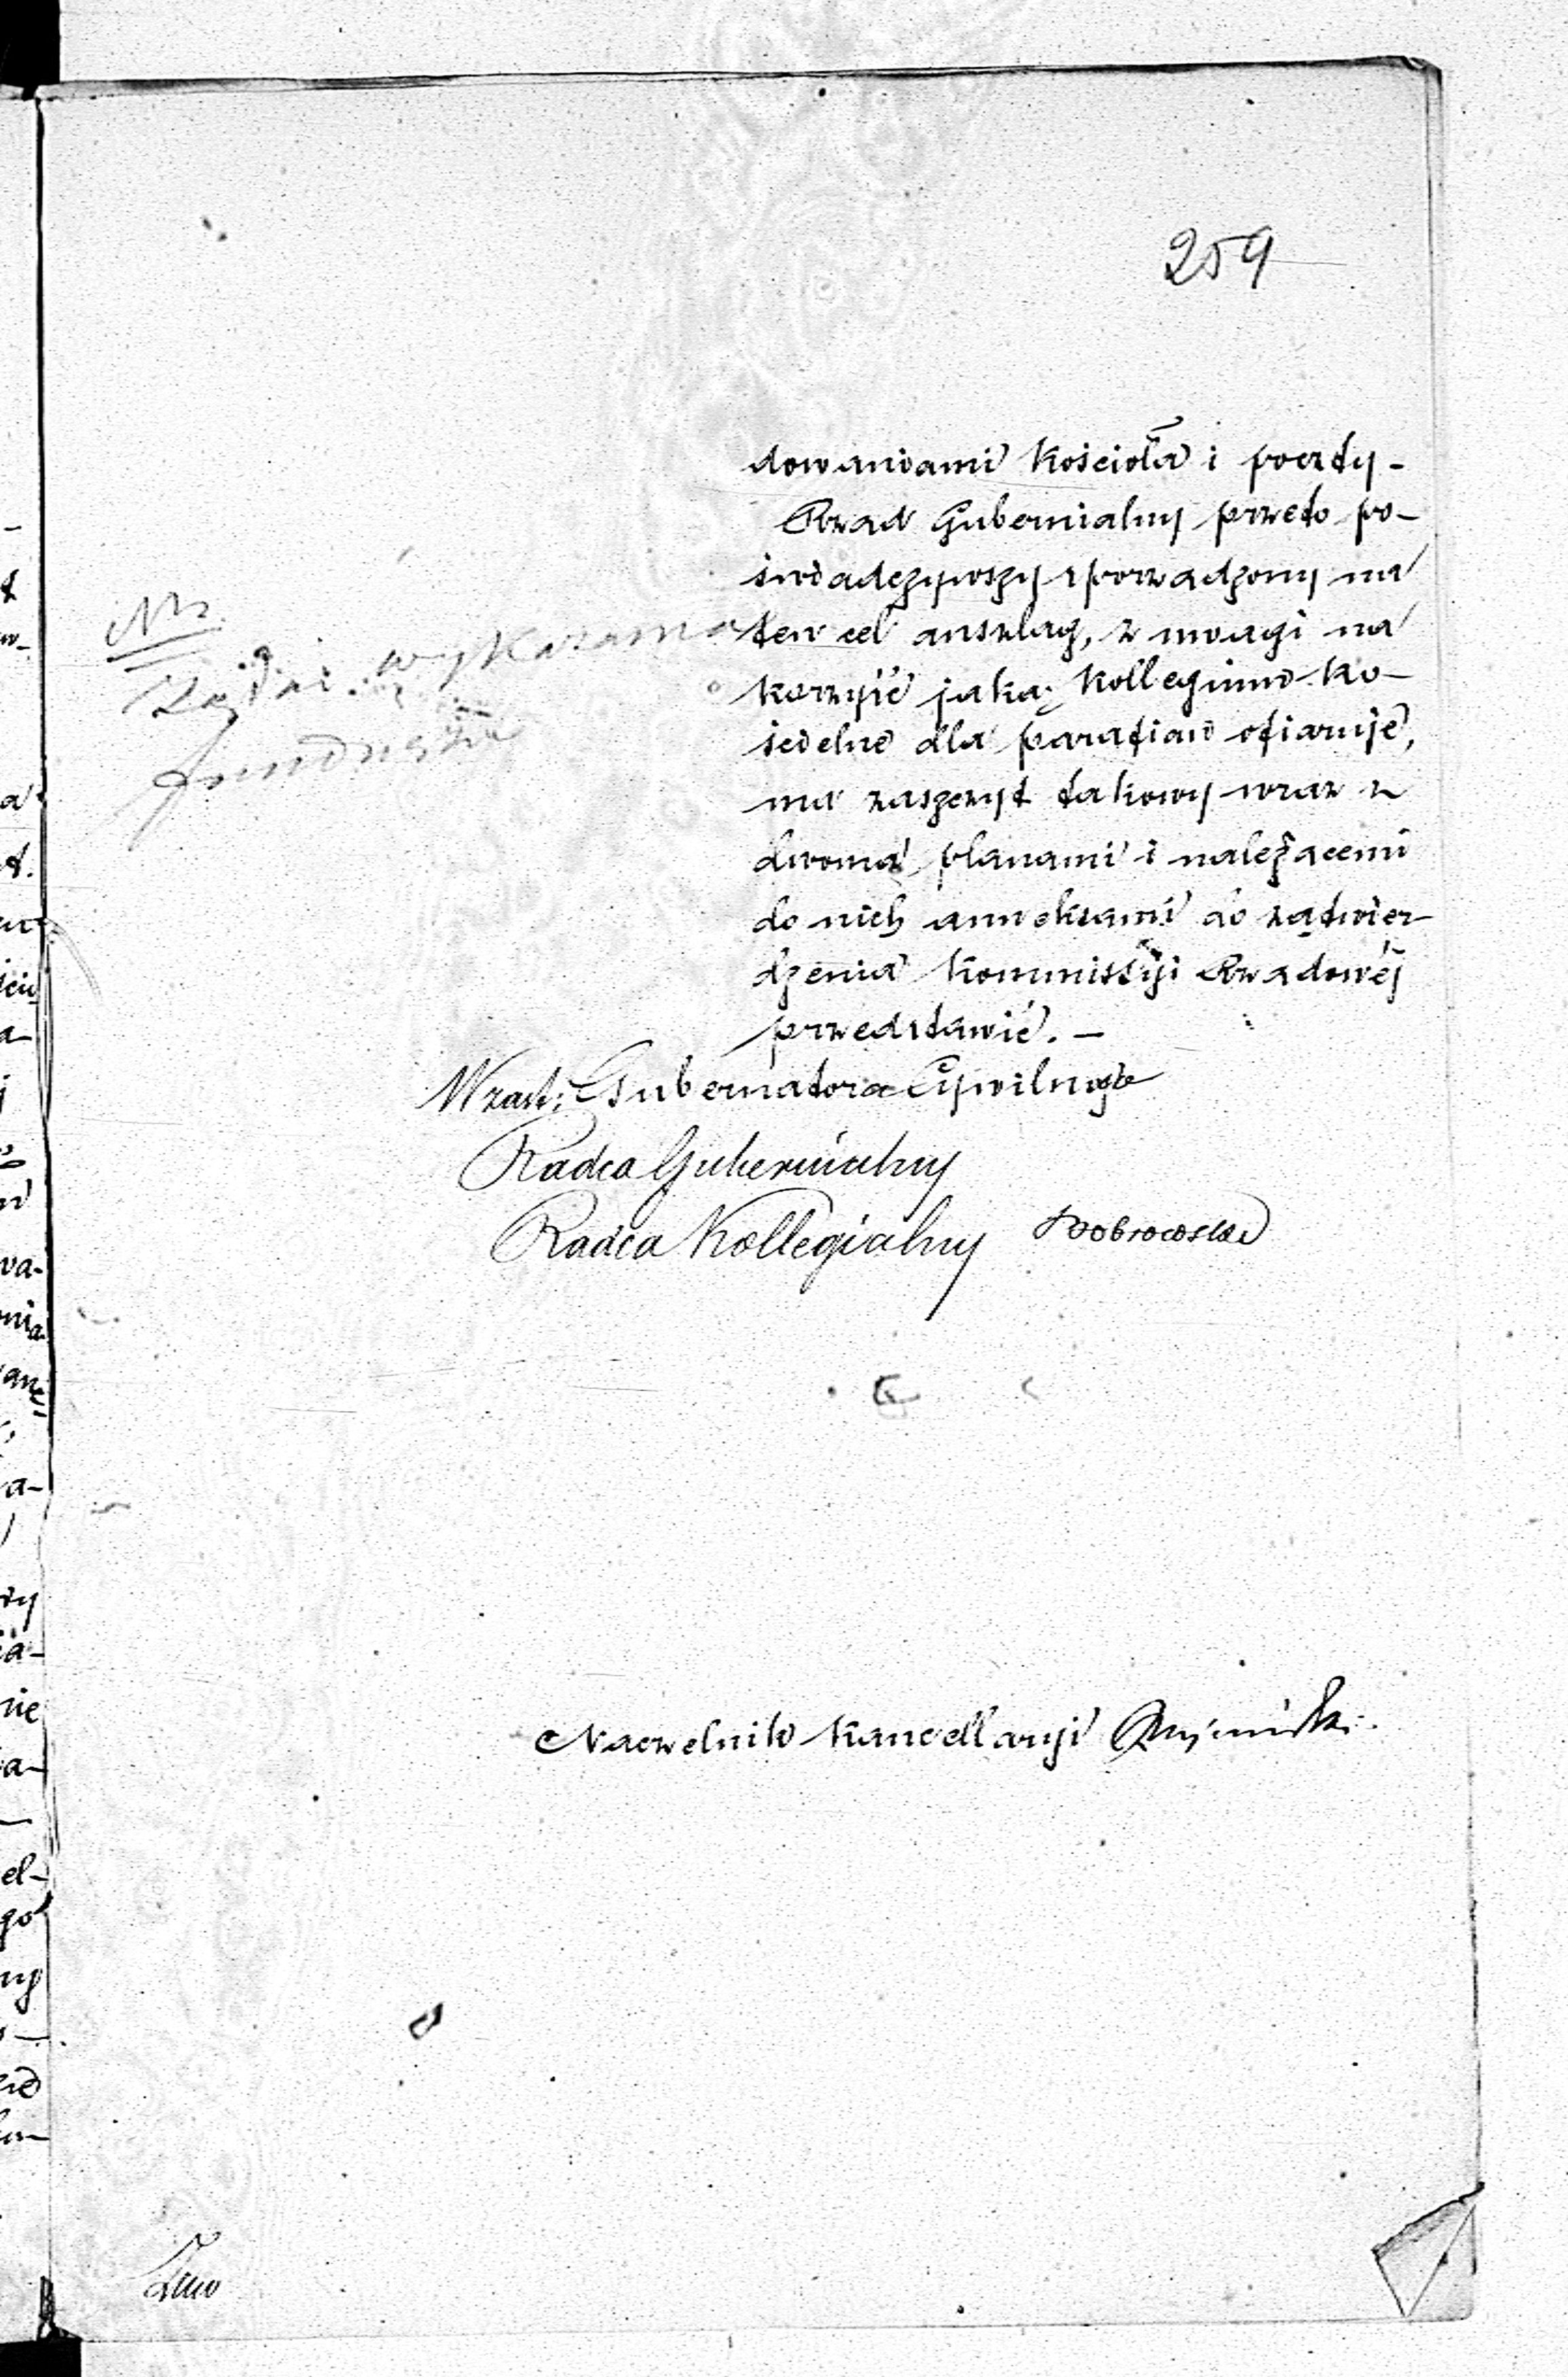 259
dowaniami Kościoła i poczty –
Rząd Gubernialny przeto po–
świadczywszy sporządzony na
ten cel anszlag, z uwagi na
korzyść jaką Kollegium Ko–
ścielne dla parafian ofiaruje,
ma zaszczyt takowy wraz z
dwoma planami i należącemi
do nich annexami do zatwier–
dzenia Kommissyi Rządowéj
przedstawić. –
W zast: Gubernatora Cywilnego
Radca Gubernialny
Radca Kollegialny
Nr
Żądać wykazania
funduszu
Naczelnik Kancellaryi